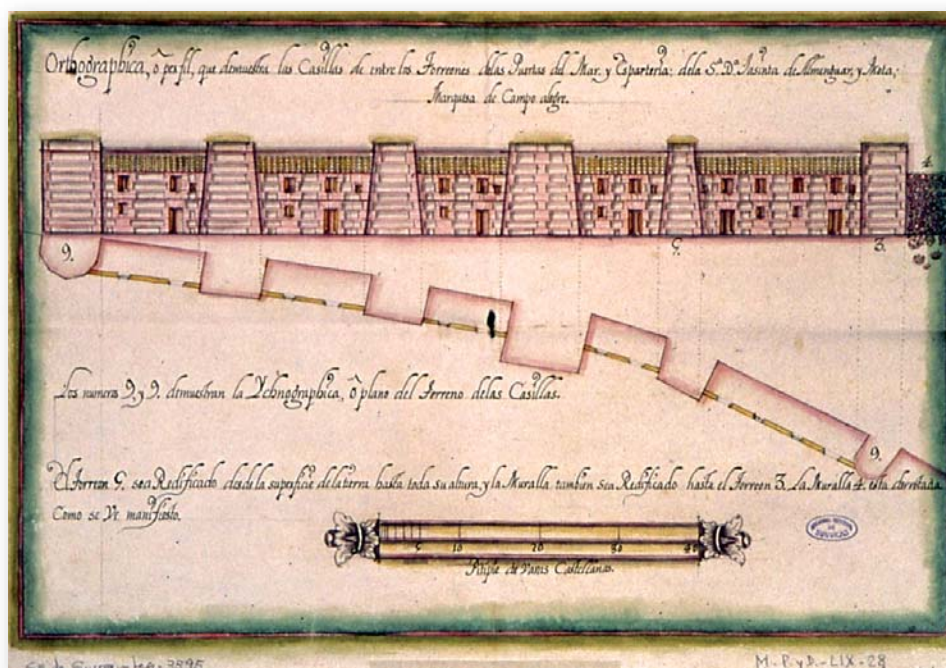 Orthographica, ô perfil, que demuestra las Casillas de entre los Torreones delas Puertas del Mar, y Esparteria; dela Sª. Dª. Jasinta de Almunguar, y Mota;
Marquesa de Campo alegre.
4.
9.
5.
3.
Los numeros 9, y 9. demuestran la Ychnographica, ô plano del Terreno delas Casillas.
9.
El Torreon 5. se a Redificado desde la superficie dela tierra hasta toda su altura, y la Muralla tambien se a Redificado hasta el Torreon 3. La Muralla 4. esta derrotada
Como se Ve manifiesto.
5 10 20 30 40
Pitipie de Varas Castellanas.
M. P. y D. - LIX - 28